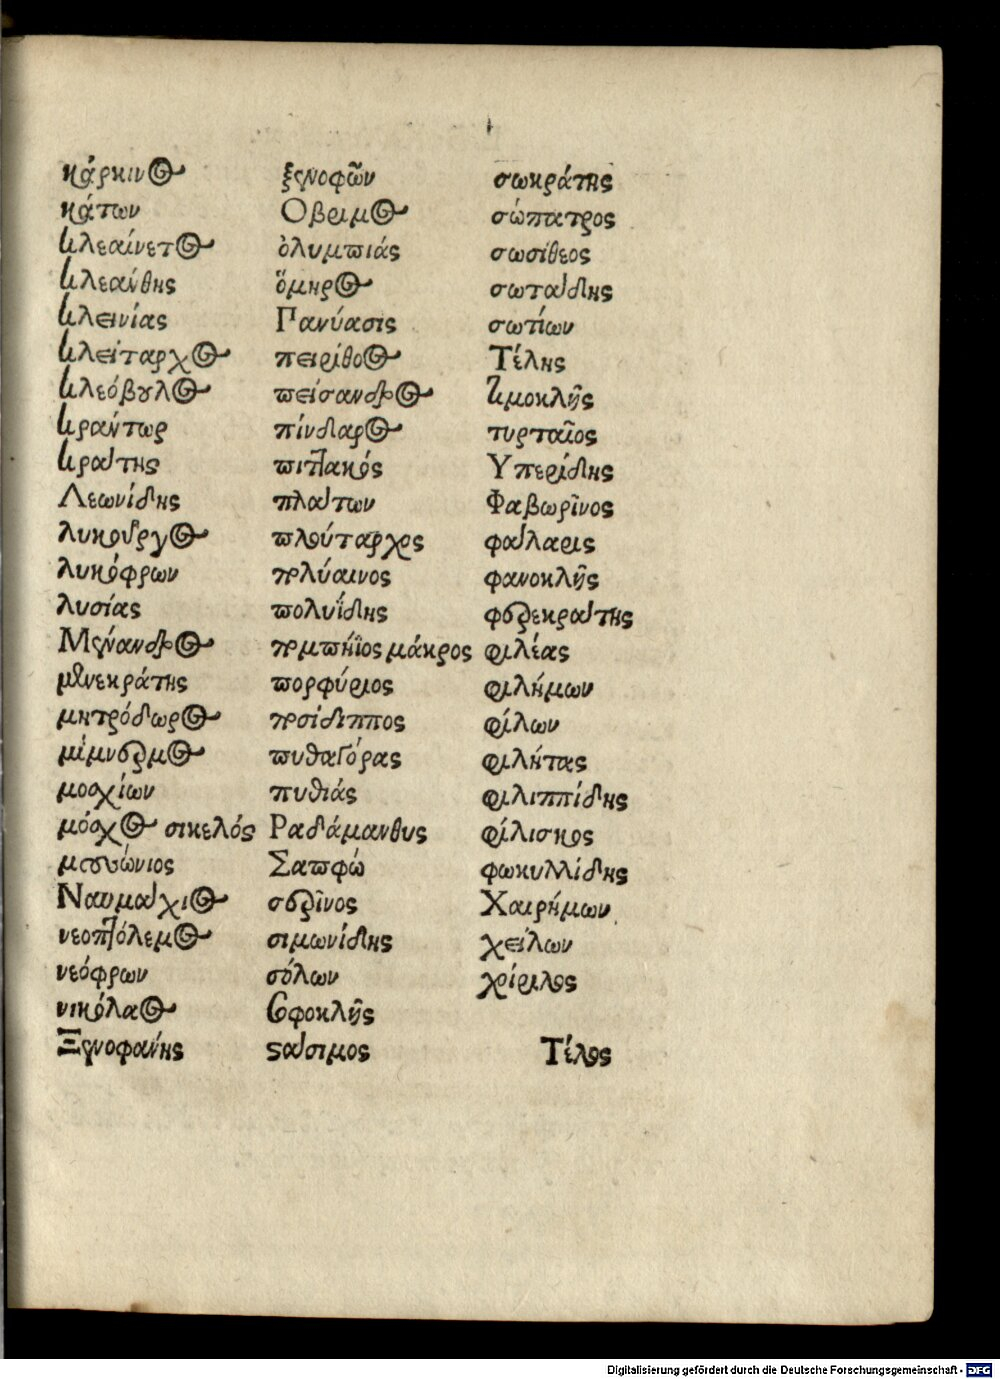 κάρκινος
κάτων
κλεαίνετος
κλεάνθης
κλεινίας
κλείταρχος
κλεόβουλος
κράντωρ
κράτης
Λεωνίδης
λυκοῦργος
λυκόφρων
λυσίας
Μένανδρος
μενεκράτης
μητρόδωρος
μίμνερμος
μοσχίων
μόσχος σικελός
μουσώνιος
Ναυμάχιος
νεοπτόλεμος
νεόφρων
νικόλαος
Ξενοφάνης
ξενοφῶν
Οβριμος
ὀλυμπιάς
ὅμηρος
Πανύασις
πειρίθοος
πείσανδρος
πίνδαρος
πιττακός
πλάτων
πλούταρχος
πολύαινος
πολυΐδης
πομπήϊος μάκρος
πορφύριος
ποσίδιππος
πυθαγόρας
πυθιάς
Ραδάμανθυς
Σαπφώ
σερῖνος
σιμωνίδης
σόλων
Σοφοκλῆς
στάσιμος
σωκράτης
σώπατρος
σωσίθεος
σωτάδης
σωτίων
Τέλης
τιμοκλῆς
τυρταῖος
Υπερίδης
Φαβωρῖνος
φάλαρις
φανοκλῆς
φερεκράτης
φιλέας
φιλήμων
φίλων
φιλήτας
φιλιππίδης
φίλισκος
φωκυλλίδης
Χαιρήμων
χείλων
χοίριλος
Τέλος
Digitalisierung gefördert durch die Deutsche Forschungsgemeinschaft - DFG